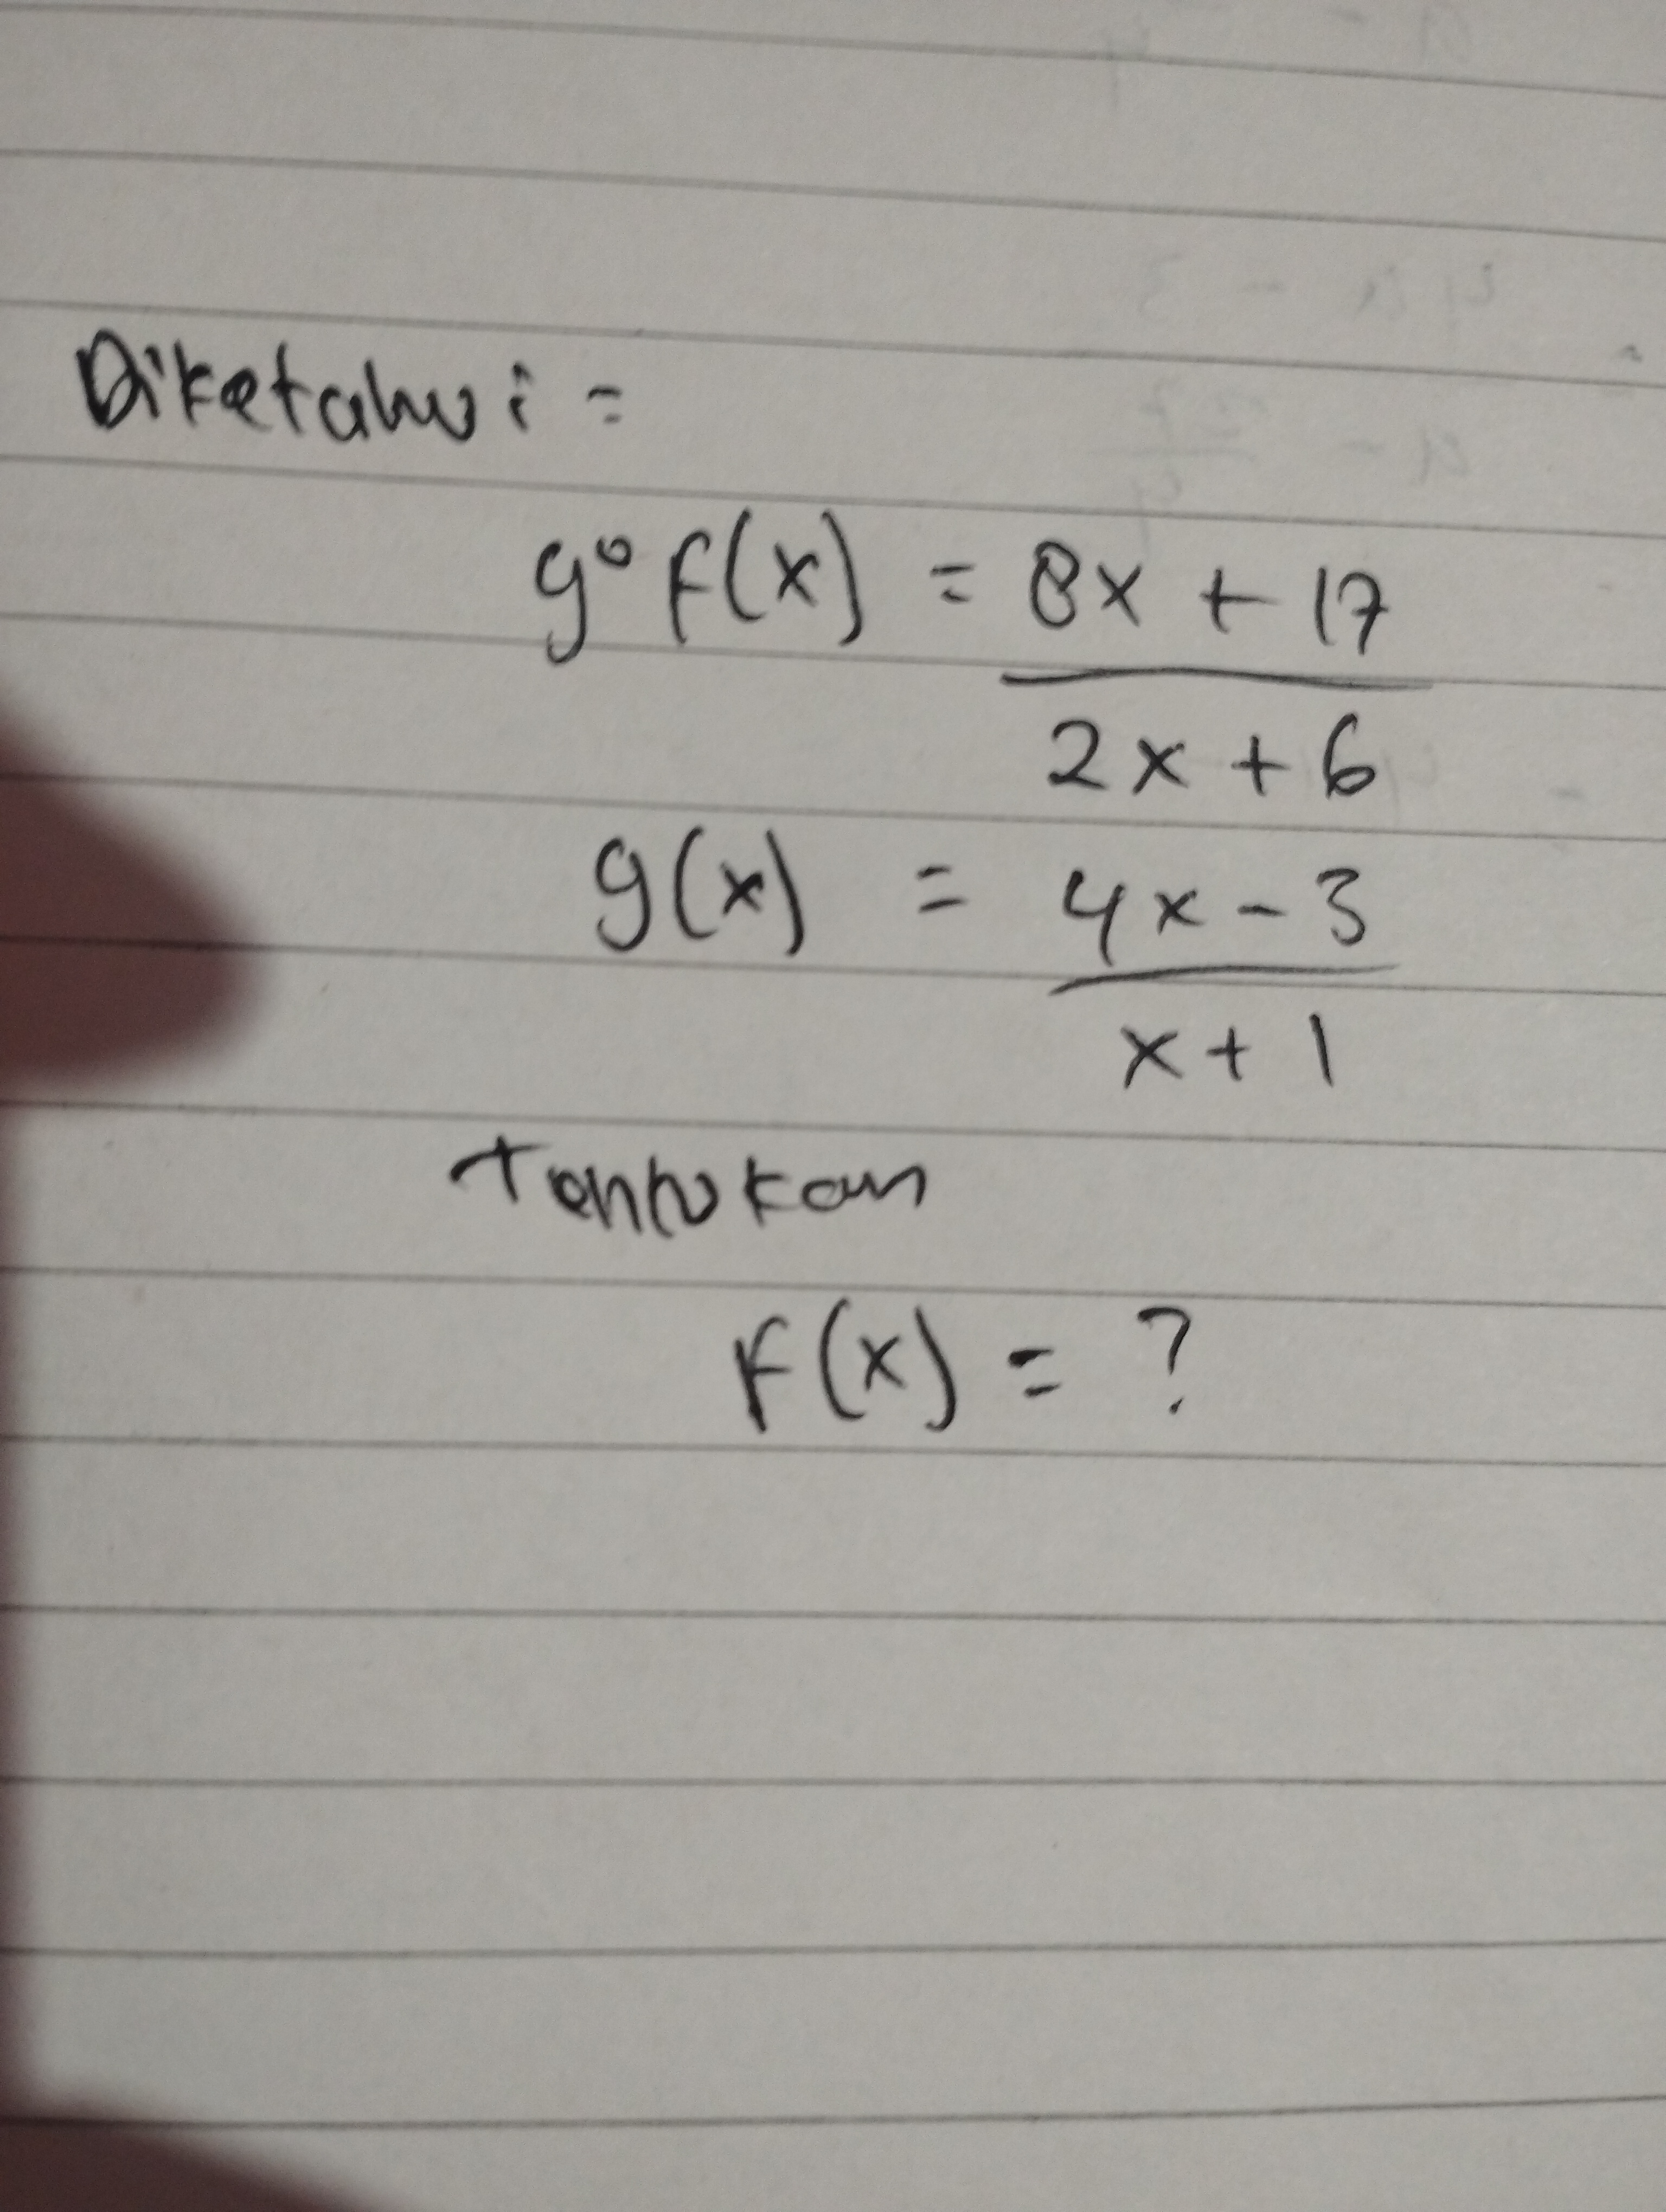 Diketahui =
g∘f(x) = 8x + 17
2x + 6
g(x) = 4x - 3
x + 1
Tentukan
F(x) = ?